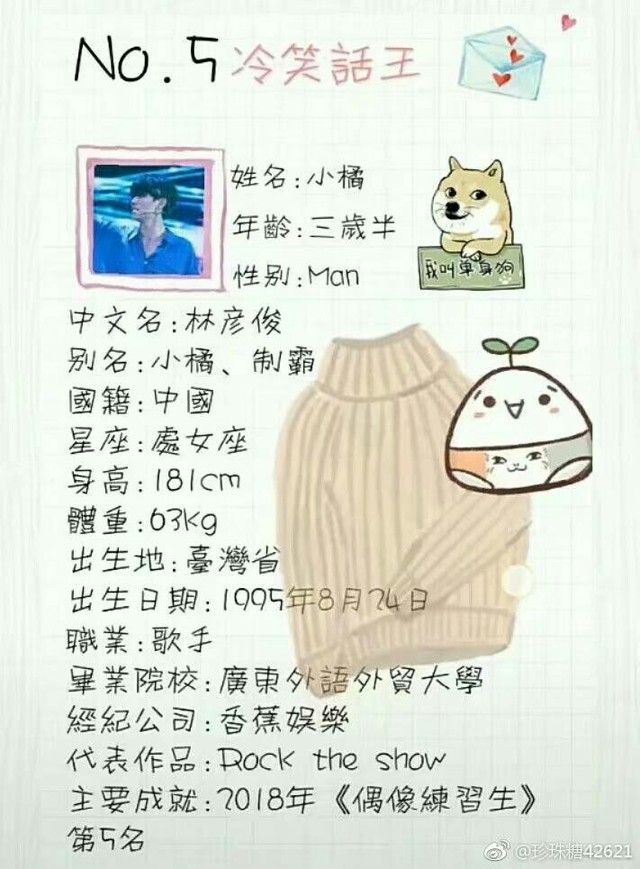 No.5 冷笑話王
姓名:小橘
年齡:三歲半
性别:Man
我叫单身狗
中文名:林彦俊
别名:小橘、制霸
國籍:中國
星座:處女座
身高:181cm
體重:63kg
出生地:臺灣省
出生日期:1995年8月24日
職業:歌手
畢業院校:廣東外語外貿大學
經紀公司:香蕉娛樂
代表作品:Rock the show
主要成就:2018年《偶像練習生》
第5名
@珍珠糖42621